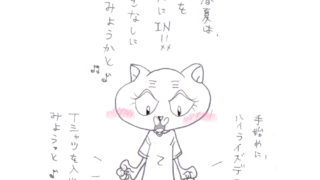 春夏は、
を
にIN!!♪♪
きなしに
みようかと♪
手始めに、
ハイライズデ
Tシャツを入
みようっと♪